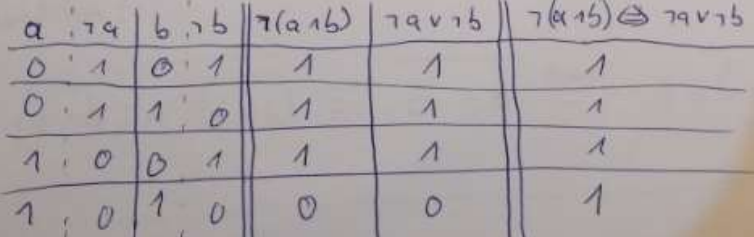 a ¬a b ¬b ¬(a∧b) ¬a∨¬b ¬(a∧b)⇔¬a∨¬b
0 1 0 1 1 1 1
0 1 1 0 1 1 1
1 0 0 1 1 1 1
1 0 1 0 0 0 1